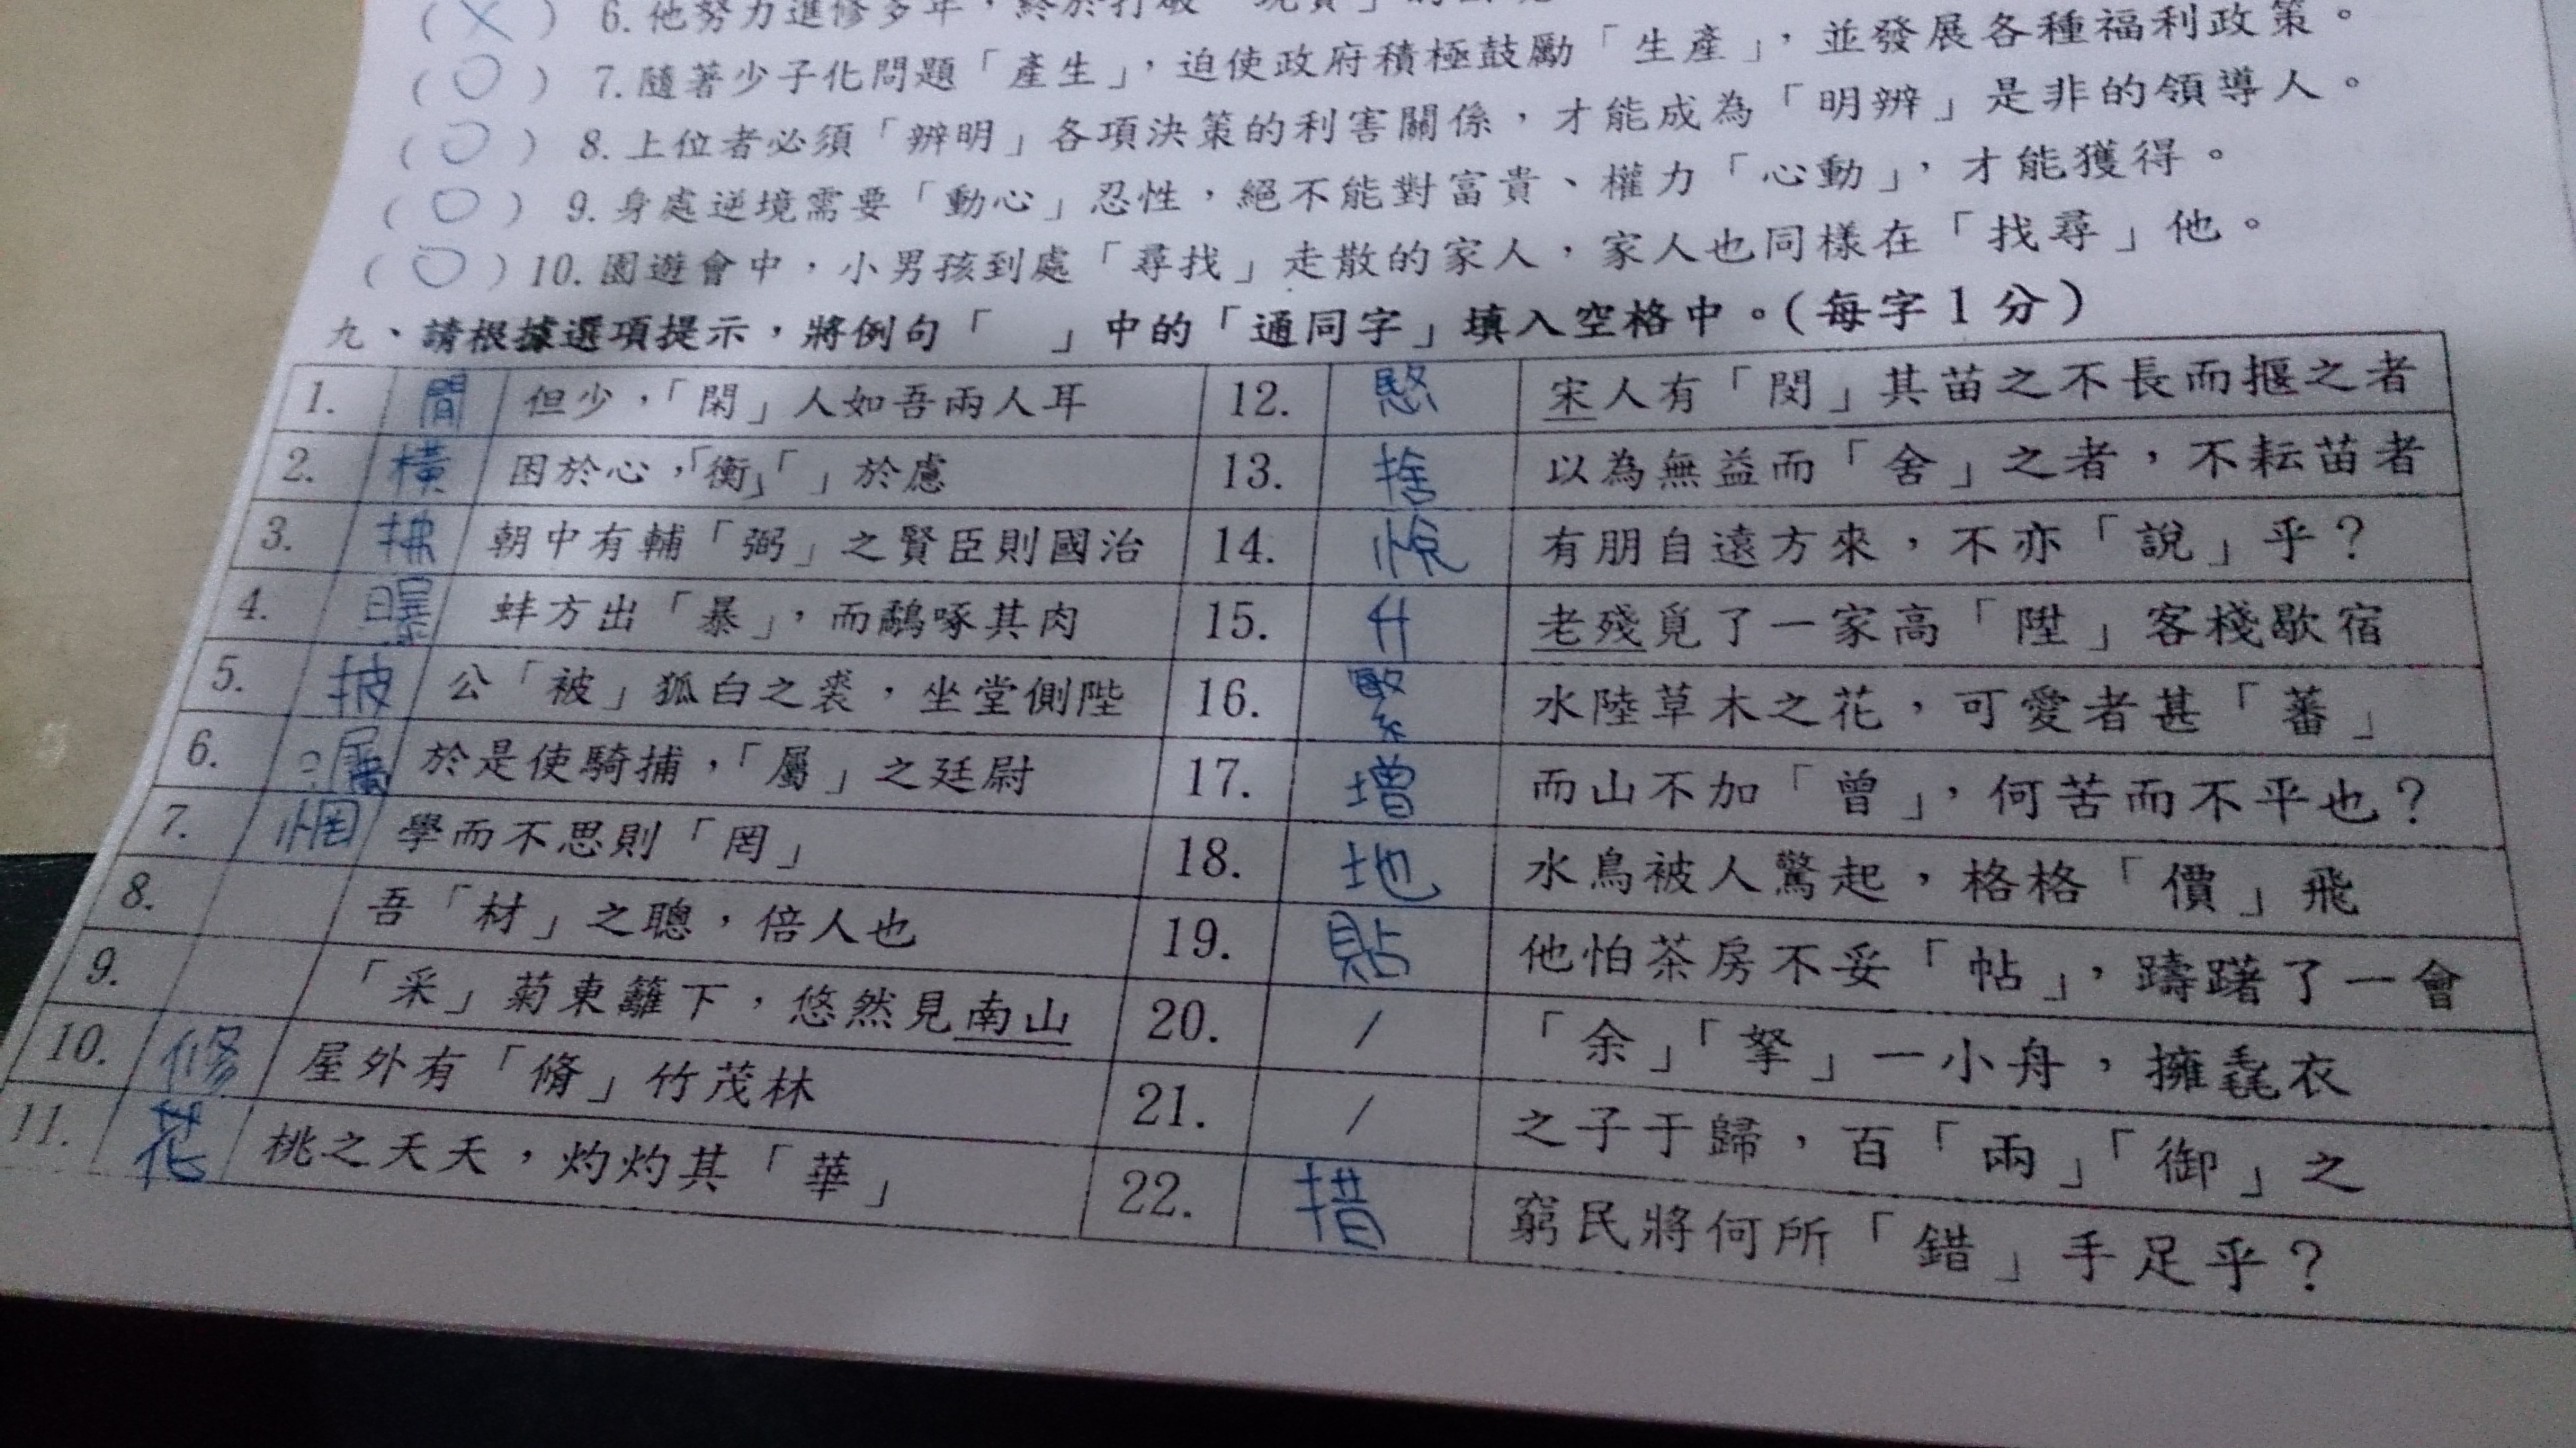 ( X ) 6. 他努力進修多年，終於打破「現實」的
( ○ ) 7. 隨著少子化問題「產生」，迫使政府積極鼓勵「生產」，並發展各種福利政策。
( ○ ) 8. 上位者必須「辨明」各項決策的利害關係，才能成為「明辨」是非的領導人。
( ○ ) 9. 身處逆境需要「動心」忍性，絕不能對富貴、權力「心動」，才能獲得。
( ○ ) 10. 園遊會中，小男孩到處「尋找」走散的家人，家人也同樣在「找尋」他。
九、請根據選項提示，將例句「　」中的「通同字」填入空格中。(每字1分)
1. 間 但少，「閑」人如吾兩人耳
2. 橫 困於心，「衡」「」於慮
3. 拂 朝中有輔「弼」之賢臣則國治
4. 曝 蚌方出「暴」，而鷸啄其肉
5. 披 公「被」狐白之裘，坐堂側陛
6. 囑 於是使騎捕，「屬」之廷尉
7. 惘 學而不思則「罔」
8. 吾「材」之聰，倍人也
9. 「采」菊東籬下，悠然見南山
10. 修 屋外有「脩」竹茂林
11. 花 桃之夭夭，灼灼其「華」
12. 愍 宋人有「閔」其苗之不長而揠之者
13. 捨 以為無益而「舍」之者，不耘苗者
14. 悅 有朋自遠方來，不亦「說」乎？
15. 升 老殘覓了一家高「陞」客棧歇宿
16. 繁 水陸草木之花，可愛者甚「蕃」
17. 增 而山不加「曾」，何苦而不平也？
18. 地 水鳥被人驚起，格格「價」飛
19. 貼 他怕茶房不妥「帖」，躊躇了一會
20. / 「余」「拏」一小舟，擁毳衣
21. / 之子于歸，百「兩」「御」之
22. 措 窮民將何所「錯」手足乎？